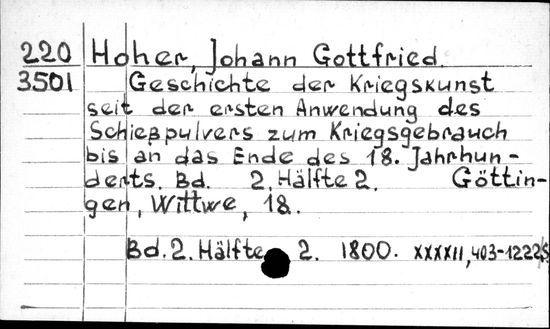 220 Hoher, Johann Gottfried.
3501 Geschichte der Kriegskunst
seit der ersten Anwendung des
Schießpulvers zum Kriegsgebrauch
bis an das Ende des 18. Jahrhun-
derts. Bd. 2. Hälfte 2. Götting-
gen, Wittwe, 18.
Bd. 2. Hälfte 2. 1800. XXXXII, 403-1222 S